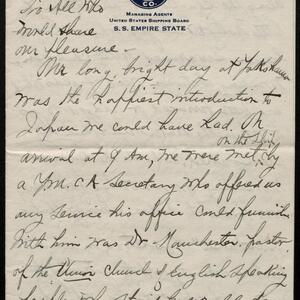 CO.
MANAGING AGENTS
UNITED STATES SHIPPING BOARD
S.S. EMPIRE STATE
To All Who
would share
our pleasure -
One long, bright day at Yokohama
was the happiest introduction to
Japan we could have had. On
on the ship,
arrival at 9 Am, we were met, by
a Y.M.C.A Secretary who offered us
any service his office could furnish.
With him was Dr. Manchester, pastor
of the Union Church of English speaking
people who